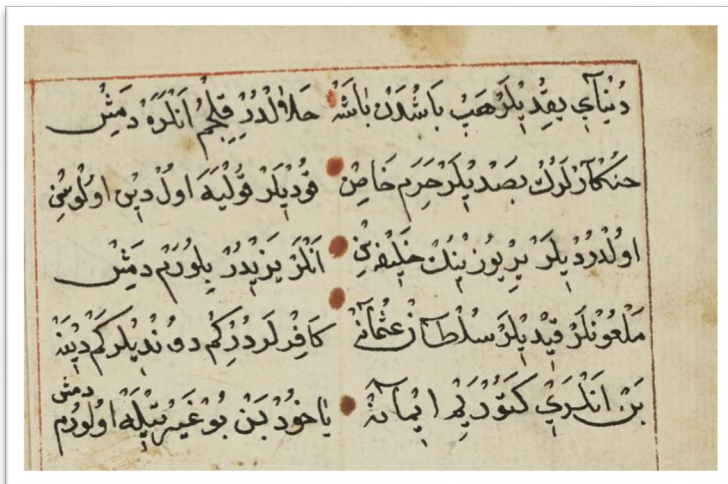 دُنْيَايِ يِقْدِيلَرْ هَپْ بَاشْدَنْ بَاشَهْ حَلَالْدُرْ قِلِجُمْ اَنْلَرَهْ دِمِشْ
خُنْكَارْلَرُكْ بَصْدِيلَرْ حَرَمِ خَاصِنْ قُودِيلَرْ قُولِيَهْ اولْ دِينِ اولُوسِنْ
اولْدُرْدِيلَرْ يِرْيُوزِينُكْ خَلِيفَهسِنْ اَنْلَرْ يَزِيدْدُرْ بِلُورَمْ دِمِشْ
مَلْعُونْلَرْ قِيْدِيلَرْ سُلْطَانْ عُثْمَانَهْ كَافِرْلَرْدُرْ كِمْ دُونْدِيلَرْ كَمْ دِينَهْ
بَنْ اَنْلَرِي كَتُورَيِمْ اِيمَانَهْ يَاخُودْ بَنْ بُو غَيْرَتِيلَهْ اولُورَمْ دِمِشْ